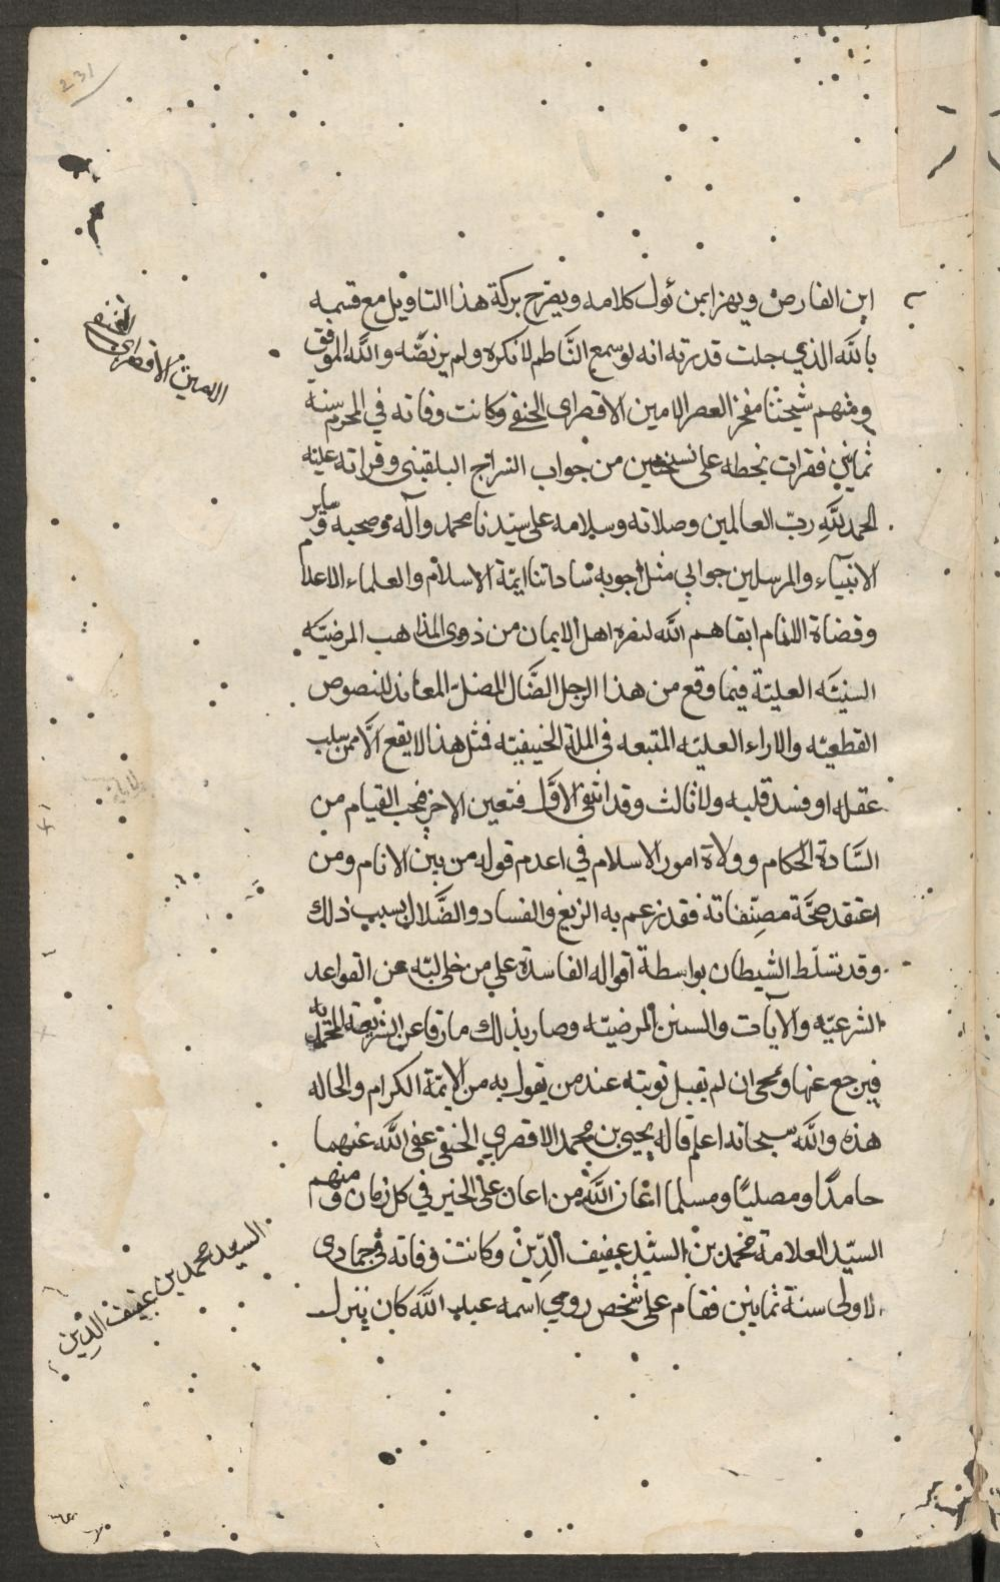 231
ابن الفارض ويهزا بمن يؤل كلامه ويصرح بركة هذا التاويل مع قسمه
بالله الذي جلت قدرته انه لو سمع الناظم لانكره ولم يرتضه والله الموفق
ومنهم شيخنا مفخر العصر الامين الاقصراى الحنفى وكانت وفاته في المحرم سنة
ثمانين فقرات بخطه على نسختين من جواب السراج البلقينى وقراته عليه
الحمد لله ربّ العالمين وصلاته وسلامه على سيّدنا محمد وآله وصحبه وساير
الانبياء والمرسلين جوابي مثل اجوبه ساداتنا ايمّة الاسلام والعلماء الاعلام
وقضاة الانام ابقاهم الله لنصره اهل الايمان من ذوى المذاهب المرضيّه
السنيّه العليّة فيما وقع من هذا الرجل الضّال المضل المعاند للنصوص
القطعيّه والاراء العليّه المتبعه فى الملة الحنيفيّه فمثل هذا لا يقع الّا ممن سلب
عقله او فسد قلبه ولا ثالث وقد انتفى الاوّل فتعين الاخر فيجب القيام من
السّادة الحكام وولاة امور الاسلام في اعدام قوله من بين الانام ومن
اعتقد صحّة مصنّفاته فقد زعم به الزيغ والفساد والضّلال بسبب ذلك
وقد تسلّط الشيطان بواسطة اقواله الفاسدة على من خلى لبّه عن القواعد
الشرعيّه والآيات والسنن المرضيّه وصار بذلك مارقا عن الشريعة المحمديه
فيرجع عنها ويمحى ان لم يقبل توبته عند من يقول به من الايمّة الكرام والحاله
هذه والله سبحانه اعلم قاله يحيى بن محمد الاقصري الحنفى عفى الله عنهما
حامدًا ومصليًا ومسلما اعان الله من اعان على الخير في كل زمان ومنهم
السيّد العلامة محمد بن السيّد عفيف الدّين وكانت وفاته فى جمادى
الاولى سنة ثمانين فقام على شخص رومي اسمه عبد الله كان ينزل
الامين الاقصراى الحنفى
السيد محمد بن عفيف الدّين